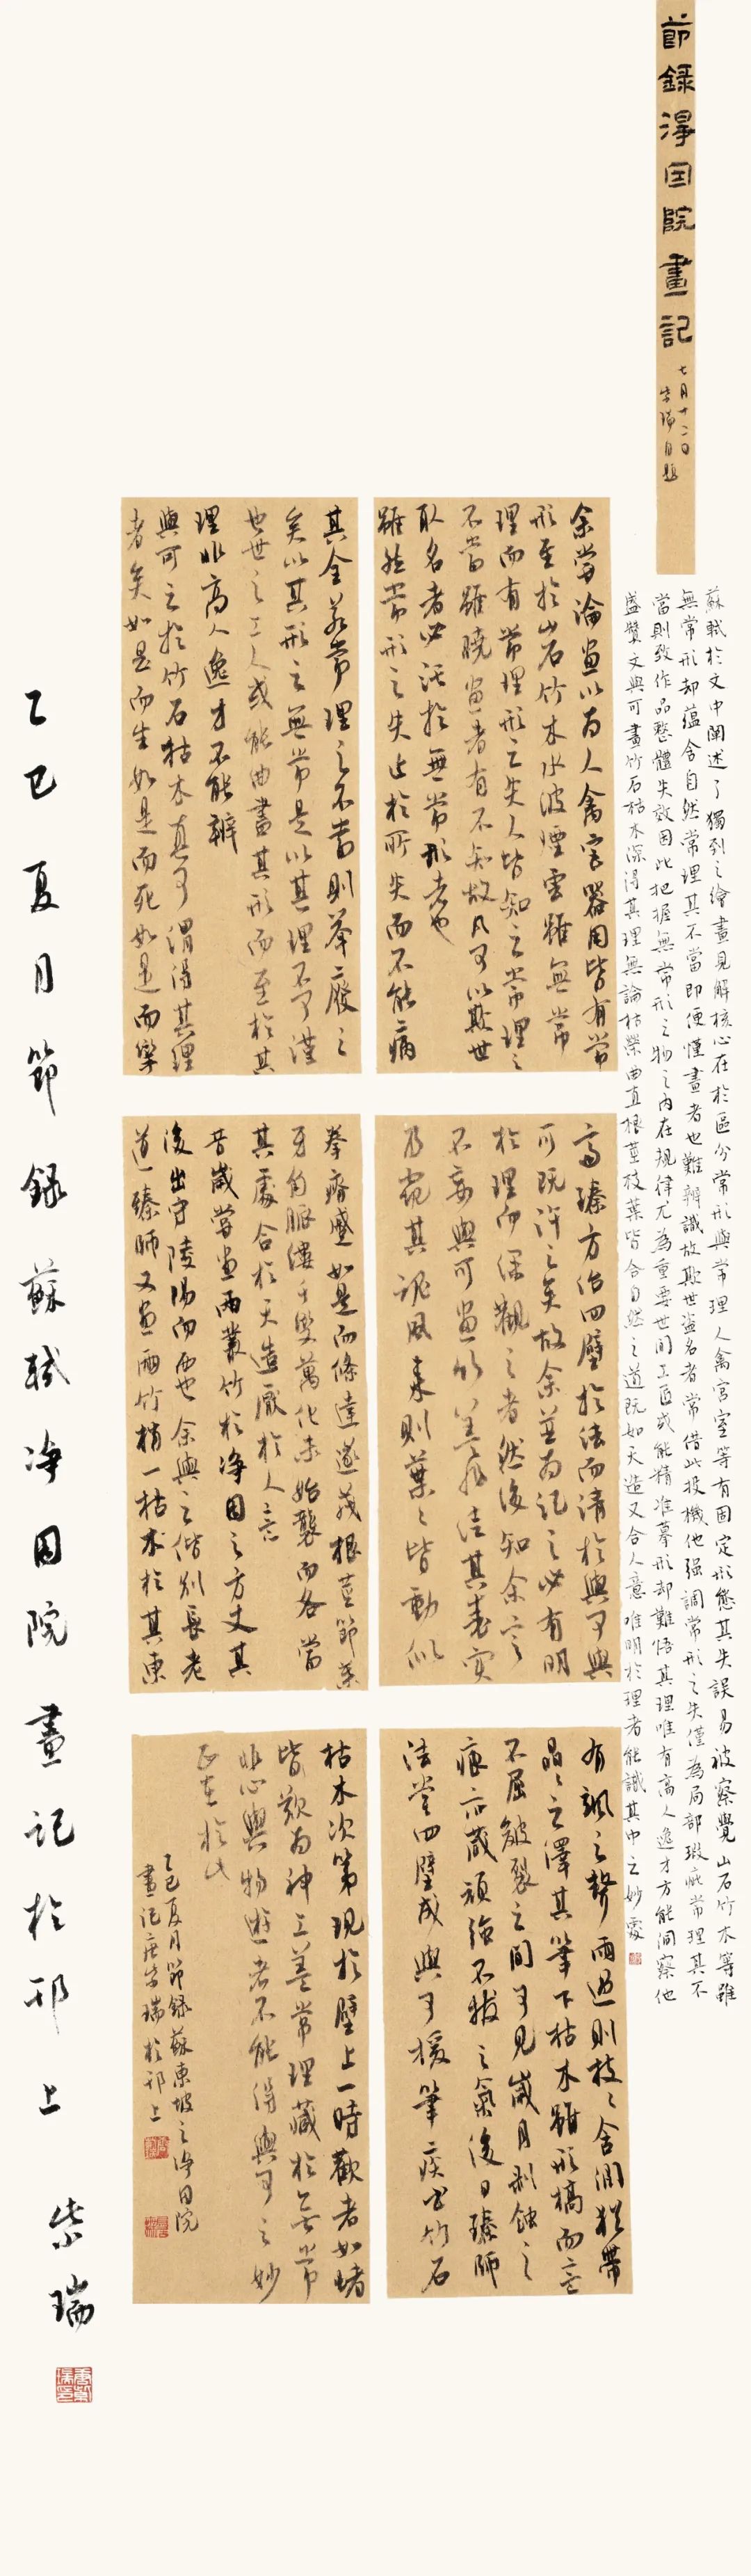 節録淨因院畫記
七月十二日
紫瑞自題
蘇軾於文中闡述了獨到之繪畫見解核心在於區分常形與常理人禽宮室等有固定形態其失誤易被察覺山石竹木等雖
無常形却蘊含自然常理其不當即便懂畫者也難辨識故欺世盜名者常借此投機他强調常形之失僅為局部瑕疵常理其不
當則致作品整體失效因此把握無常形之物之内在規律尤為重要世間工匠或能精准摹形却難悟其理唯有高人逸才方能洞察他
盛贊文與可畫竹石枯木深得其理無論枯榮曲直根莖枝葉皆合自然之道既如天造又合人意唯明於理者能識其中之妙處
余嘗論畫以為人禽宮器用皆有常
形至於山石竹木水波煙雲雖無常
理而有常理形之失人皆知之常理之
不當雖曉畫者有不知故凡可以欺世
取名者必託於無常形者也
雖然常形之失止於所失而不能病
其全若常理之不當則舉廢之
矣以其形之無常是以其理不可謹
也世之工人或能曲盡其形而至於其
理非高人逸才不能辨
與可之於竹石枯木真可謂得其理
者矣如是而生如是而死如是而攣
拳瘠蹙如是而條達遂茂根莖節葉
牙角脈縷千變萬化未始襲而各當
其處合於天造厭於人意
昔歲嘗畫兩叢竹於淨因之方丈其
後出守陵陽而西也余與之偕別長老
道臻師又畫兩竹梢一枯木於其東
齋臻方治四壁於法而請於與可與
可既許之矣故余並為記之必有明
於理而深觀之者然後知余言
不妄與可畫竹
其魂風来則葉葉皆動似
有颯之聲雨過則枝枝含潤猶帶
晶晶之澤其筆下枯木雖形槁而意
不屈皴裂之間可見歲月剥蝕之
痕亦藏頑强不拔之氣後日臻師
法堂四壁成與可援筆疾書竹石
枯木次第現於壁上一時觀者如堵
皆歎為神工蓋常理藏於無常
非心與物遊者不能得與可之妙
正在於此
乙巳夏月節録蘇東坡之淨因院
畫記唐紫瑞於邗上
乙巳夏月節録蘇軾淨因院畫記於邗上
紫瑞